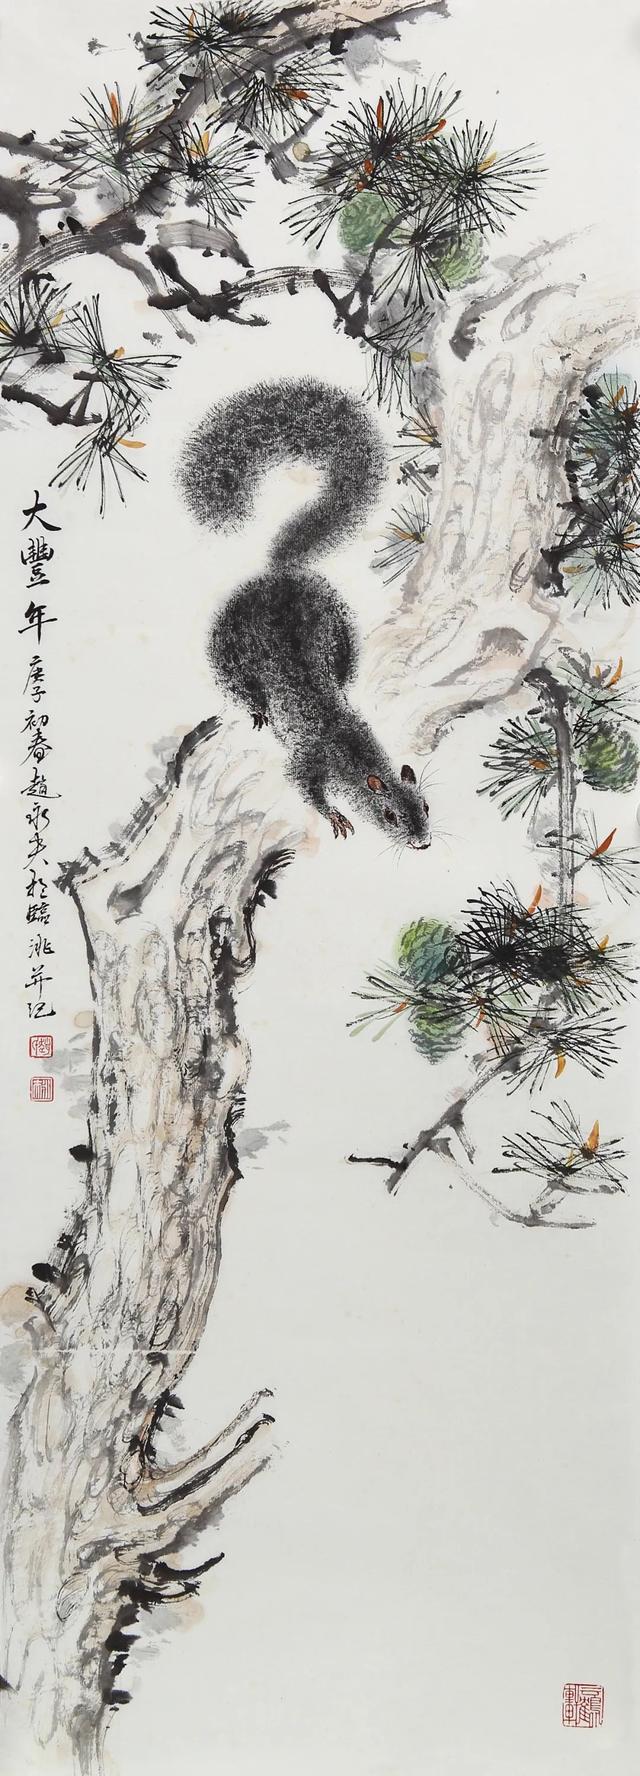 大豐年
庚子初春趙永夫於臨洮并记